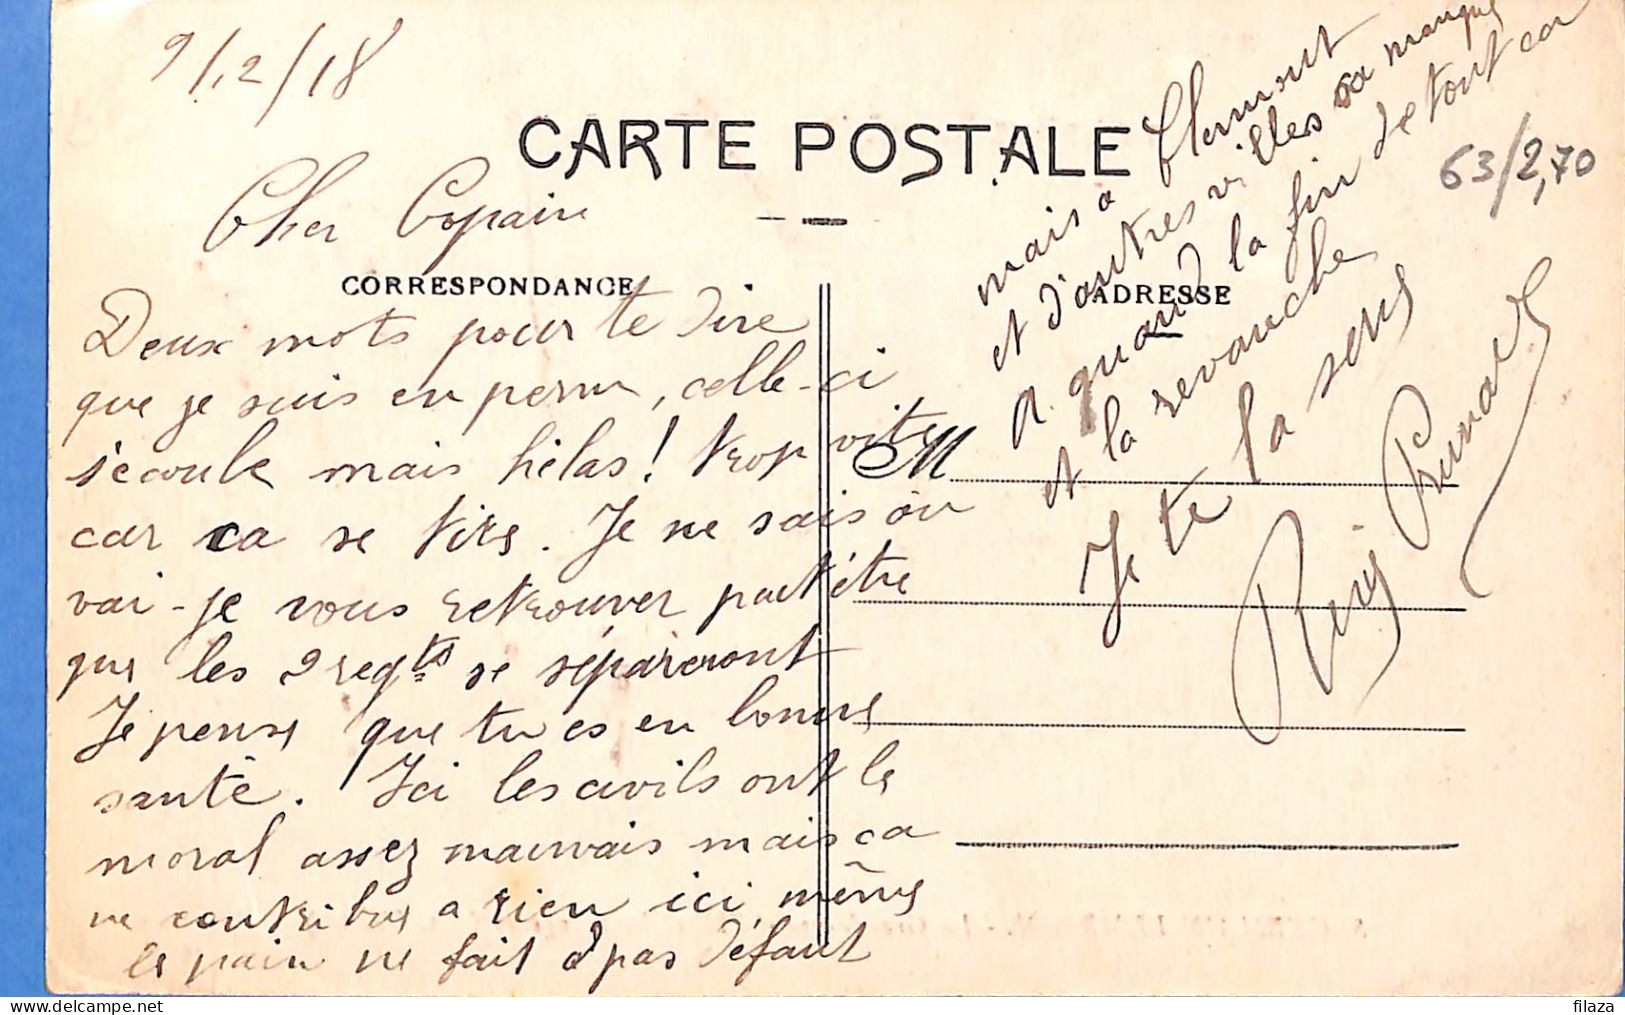 9/12/18
CARTE POSTALE
63/2,70
Cher Copain
CORRESPONDANCE
ADRESSE
M
Deux mots pour te dire
que je suis en perm, celle-ci
s'ecoule mais hélas! trop vite
car ca se tire. Je ne sais où
vai-je vous retrouver peut être
que les 2 regts se sépareront
Je pense que tu es en bonne
santé. Ici les civils ont le
moral assez mauvais mais ça
ne contribue a rien ici, même
le pain ne fait pas défaut
mais a Clermont
et d'autres villes sa manque
A quand la fin de tout ca
et la revanche
Je te la serre
filaza